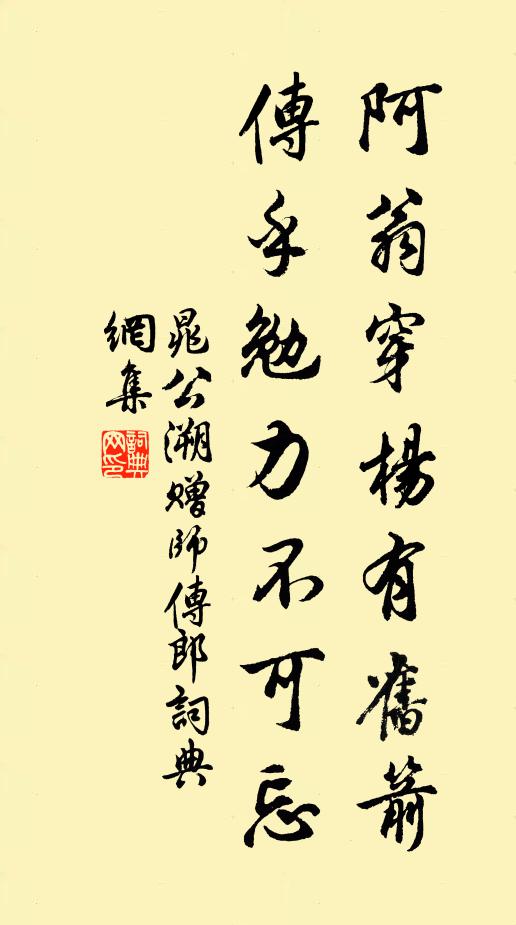 阿翁穿楊有舊箭
傳乎勉力不可忘
晁公溯贈師傳郎詞典
網集
詞典網印